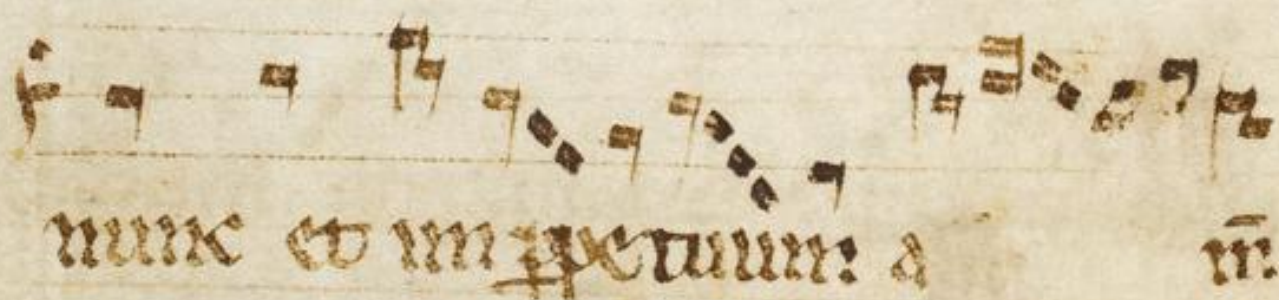 nunc et im ꝑpetuum: a m̄.